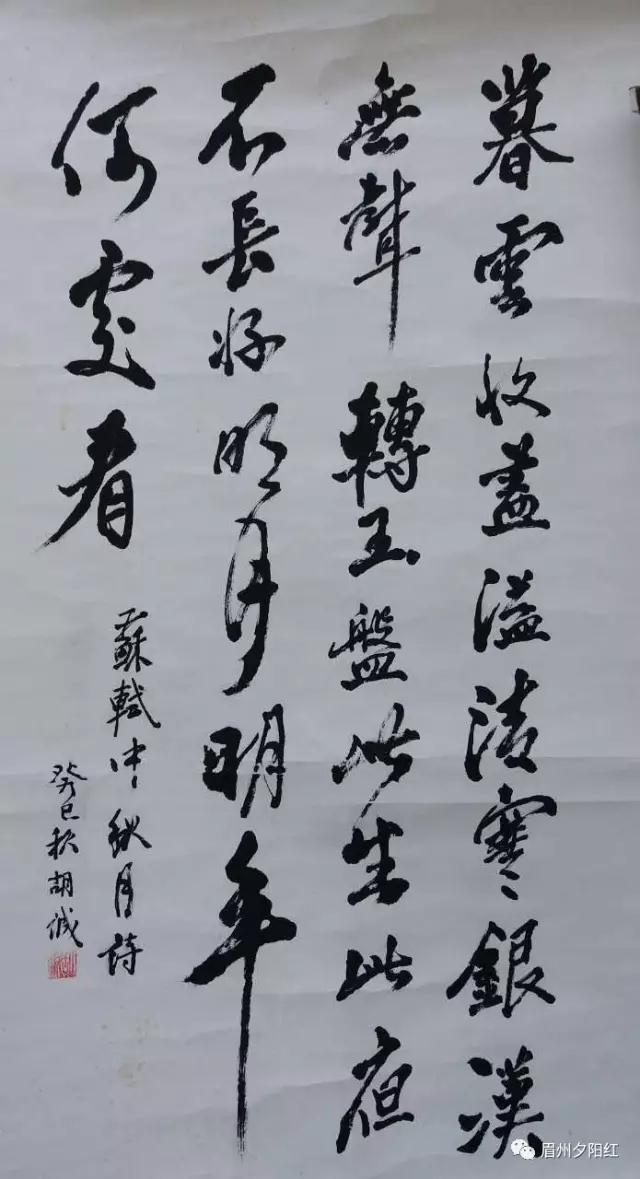 暮雲收盡溢清寒銀漢
無聲轉玉盤此生此夜
不長好明月明年
何處看
蘇軾中秋月詩
癸巳秋胡誠
眉州夕阳红